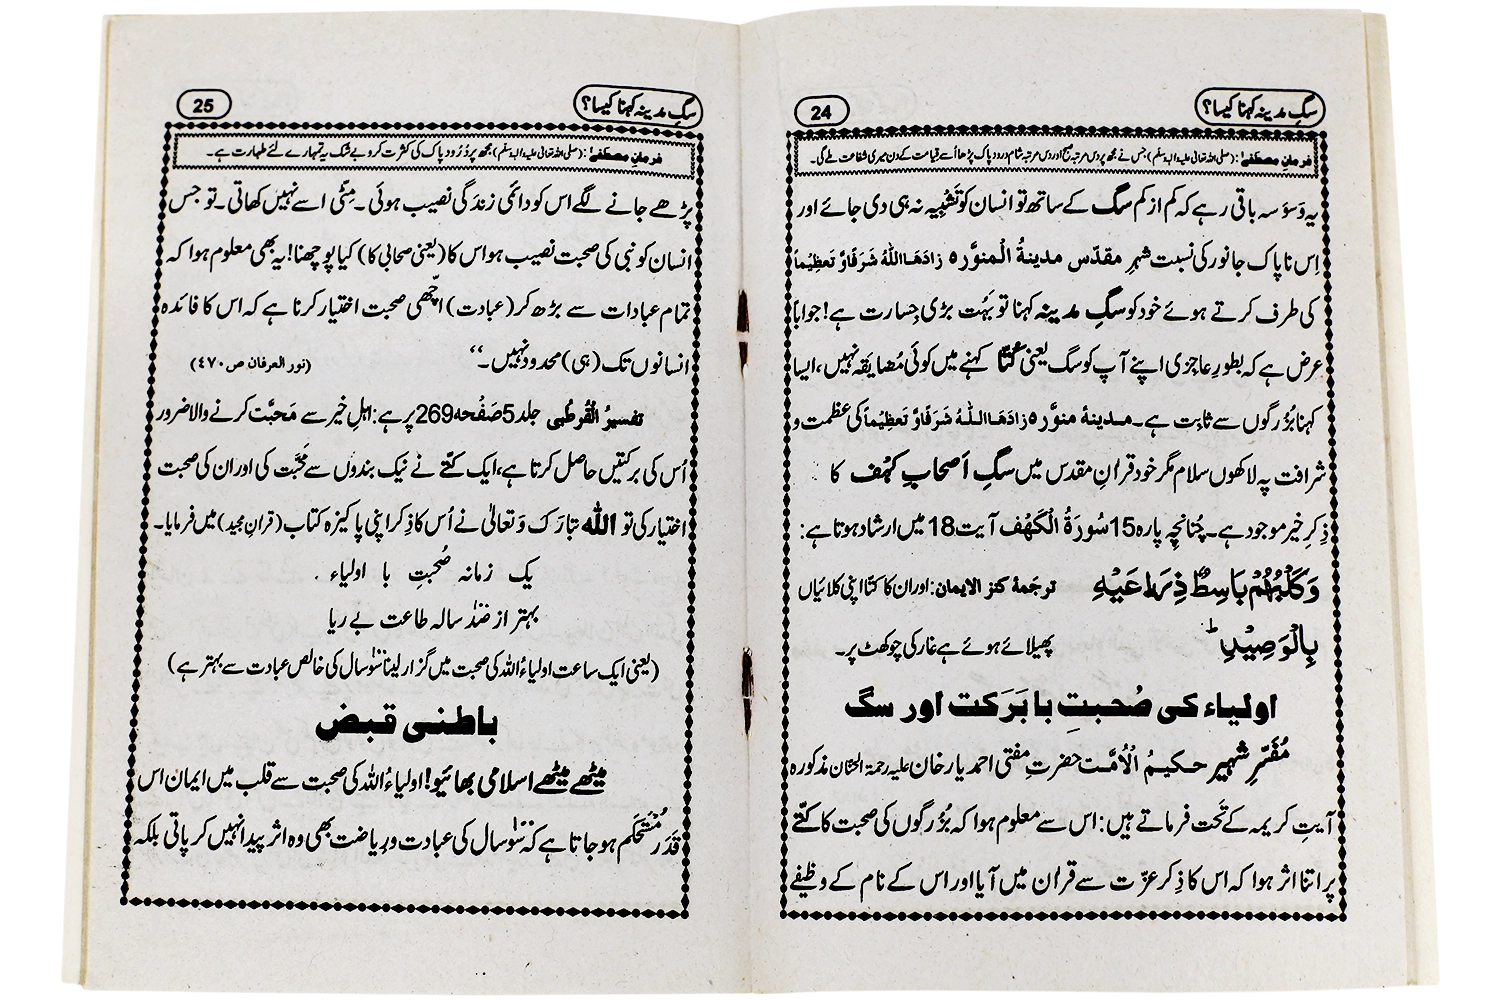 سگِ مدینہ کہنا کیسا؟
24
فرمانِ مصطفیٰ: (صلی اللہ تعالیٰ علیہ واٰلہٖ وسلّم) جس نے مجھ پر دس مرتبہ صبح اور دس مرتبہ شام درود پاک پڑھا اُسے قیامت کے دن میری شفاعت ملے گی۔
یہ وَسوَسہ باقی رہے کہ کم از کم سگ کے ساتھ تو انسان کو تَشبِیہ نہ ہی دی جائے اور
اِس ناپاک جانور کی نسبت شہرِ مقدّس مدینۃُ الْمنوَّرہ زادَھَا اللہُ شَرَفًاوَّ تَعظِیْماً
کی طرف کرتے ہوئے خود کو سگِ مدینہ کہنا تو بَہُت بڑی جِسارت ہے! جواباً
عرض ہے کہ بطورِ عاجزی اپنے آپ کو سگ یعنی کُتّا کہنے میں کوئی مُضایَقہ نہیں، ایسا
کہنا بُزُرگوں سے ثابِت ہے۔ مدینۂ منوَّرہ زادَھَا اللہُ شَرَفًاوَّ تَعظِیْماً کی عظمت و
شرافت پہ لاکھوں سلام مگر خود قراٰنِ مقدس میں سگِ اَصحابِ کہف کا
ذِکرِ خیر موجود ہے۔ چُنانچِہ پارہ 15 سُورَۃُ الْکَھْف آیت 18 میں ارشاد ہوتا ہے:
وَکَلْبُہُمْ بَاسِطٌ ذِرَاعَیْہِ ترجَمۂ کنز الایمان: اور ان کا کتّا اپنی کلائیاں
بِالْوَصِیْدِ ؕ پھیلائے ہوئے ہے غار کی چوکھٹ پر۔
اولیاء کی صُحبتِ با بَرَکت اور سگ
مُفَسِّرِ شہیر حکیمُ الْاُمَّت حضرتِ مفتی احمد یار خان علیہ رحمۃ الحنّان مذکورہ
آیتِ کریمہ کے تَحت فرماتے ہیں: اس سے معلوم ہوا کہ بُزُرگوں کی صحبت کا کتّے
پر اتنا اثر ہوا کہ اس کا ذِکر عزّت سے قراٰن میں آیا اور اس کے نام کے وظیفے
سگِ مدینہ کہنا کیسا؟
25
فرمانِ مصطفیٰ: (صلی اللہ تعالیٰ علیہ واٰلہٖ وسلّم) مجھ پر دُرُود پاک کی کثرت کرو بے شک یہ تمہارے لئے طہارت ہے۔
پڑھے جانے لگے اس کو دائمی زندگی نصیب ہوئی۔ مِٹّی اسے نہیں کھاتی۔ تو جس
انسان کو نبی کی صحبت نصیب ہو اس کا (یعنی صحابی کا) کیا پوچھنا! یہ بھی معلوم ہوا کہ
تمام عبادات سے بڑھ کر (عبادت) اچّھی صحبت اختیار کرنا ہے کہ اس کا فائدہ
انسانوں تک (ہی) محدود نہیں۔“ (نور العرفان ص ۴۷۰)
تفسیرُ الْقُرطُبی جلد 5 صَفْحہ 269 پر ہے: اہلِ خیر سے مَحَبَّت کرنے والا ضَرور
اُس کی برکتیں حاصل کرتا ہے، ایک کتّے نے نیک بندوں سے مَحَبَّت کی اور ان کی صحبت
اختیار کی تو اللہ تبارَکَ وَ تعالیٰ نے اُس کا ذِکر اپنی پاکیزہ کتاب (قراٰنِ مجید) میں فرمایا۔
یک زمانہ صُحبتِ با اولیاء
بہتر از صَد سالہ طاعت بے ریا
(یعنی ایک ساعت اولیاءُ اللہ کی صحبت میں گزار لینا سَو سال کی خالص عبادت سے بہتر ہے)
باطنی قبض
میٹھے میٹھے اسلامی بھائیو! اولیاءُ اللہ کی صحبت سے قلب میں ایمان اس
قَدَر مُسْتَحکم ہوجاتا ہے کہ سَو سال کی عبادت و رِیاضت بھی وہ اثر پیدا نہیں کرپاتی بلکہ